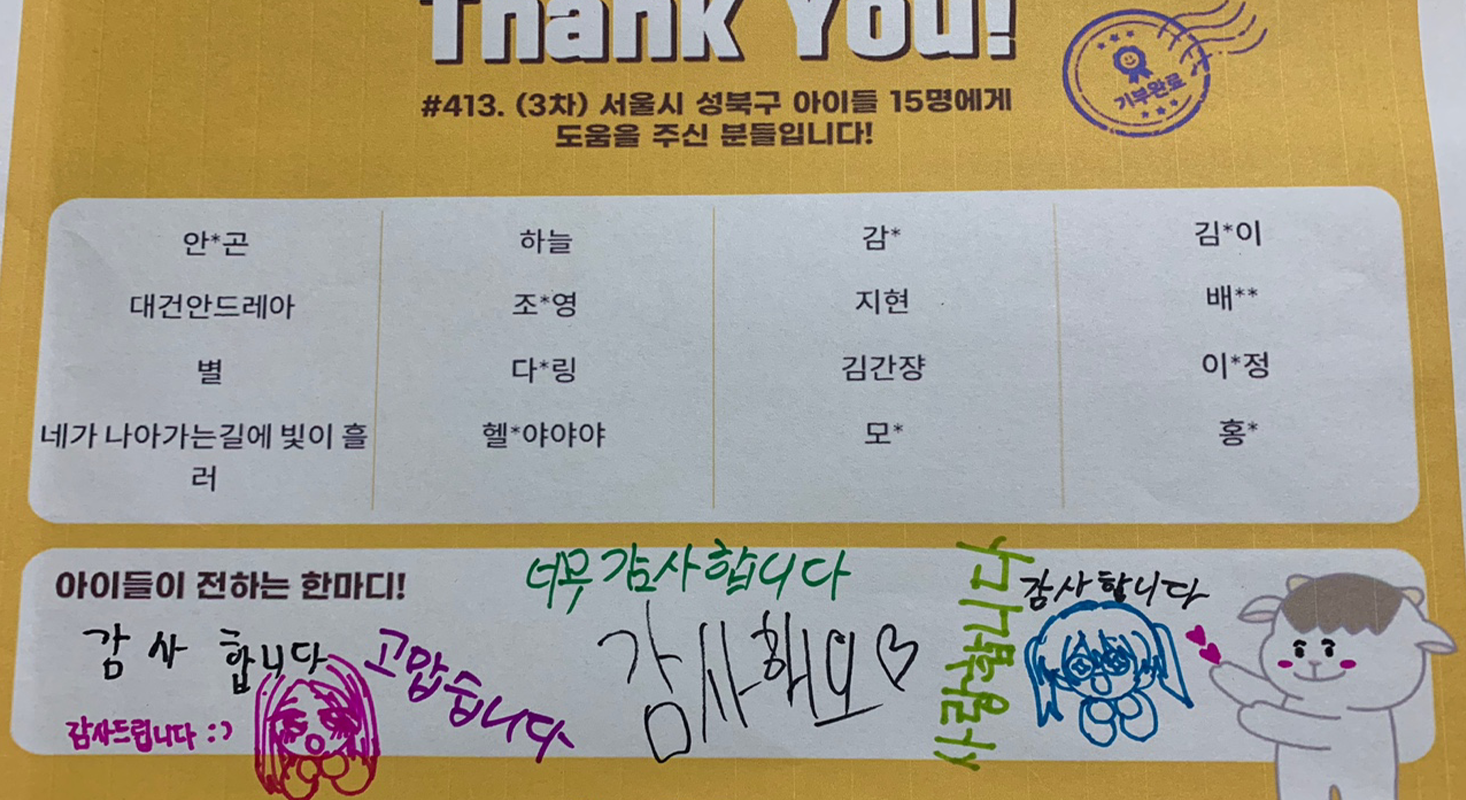 Thank You!
기부완료
#413. (3차) 서울시 성북구 아이들 15명에게
도움을 주신 분들입니다!
안*곤 하늘 감* 김*이
대건안드레아 조*영 지현 배**
별 다*링 김간쟝 이*정
네가 나아가는길에 빛이 흘 헬*야야야 모* 홍*
러
아이들이 전하는 한마디!
너무 감사합니다
감사합니다
감사합니다
고맙습니다
감사해요♡
사랑합니다
감사드립니다 :)